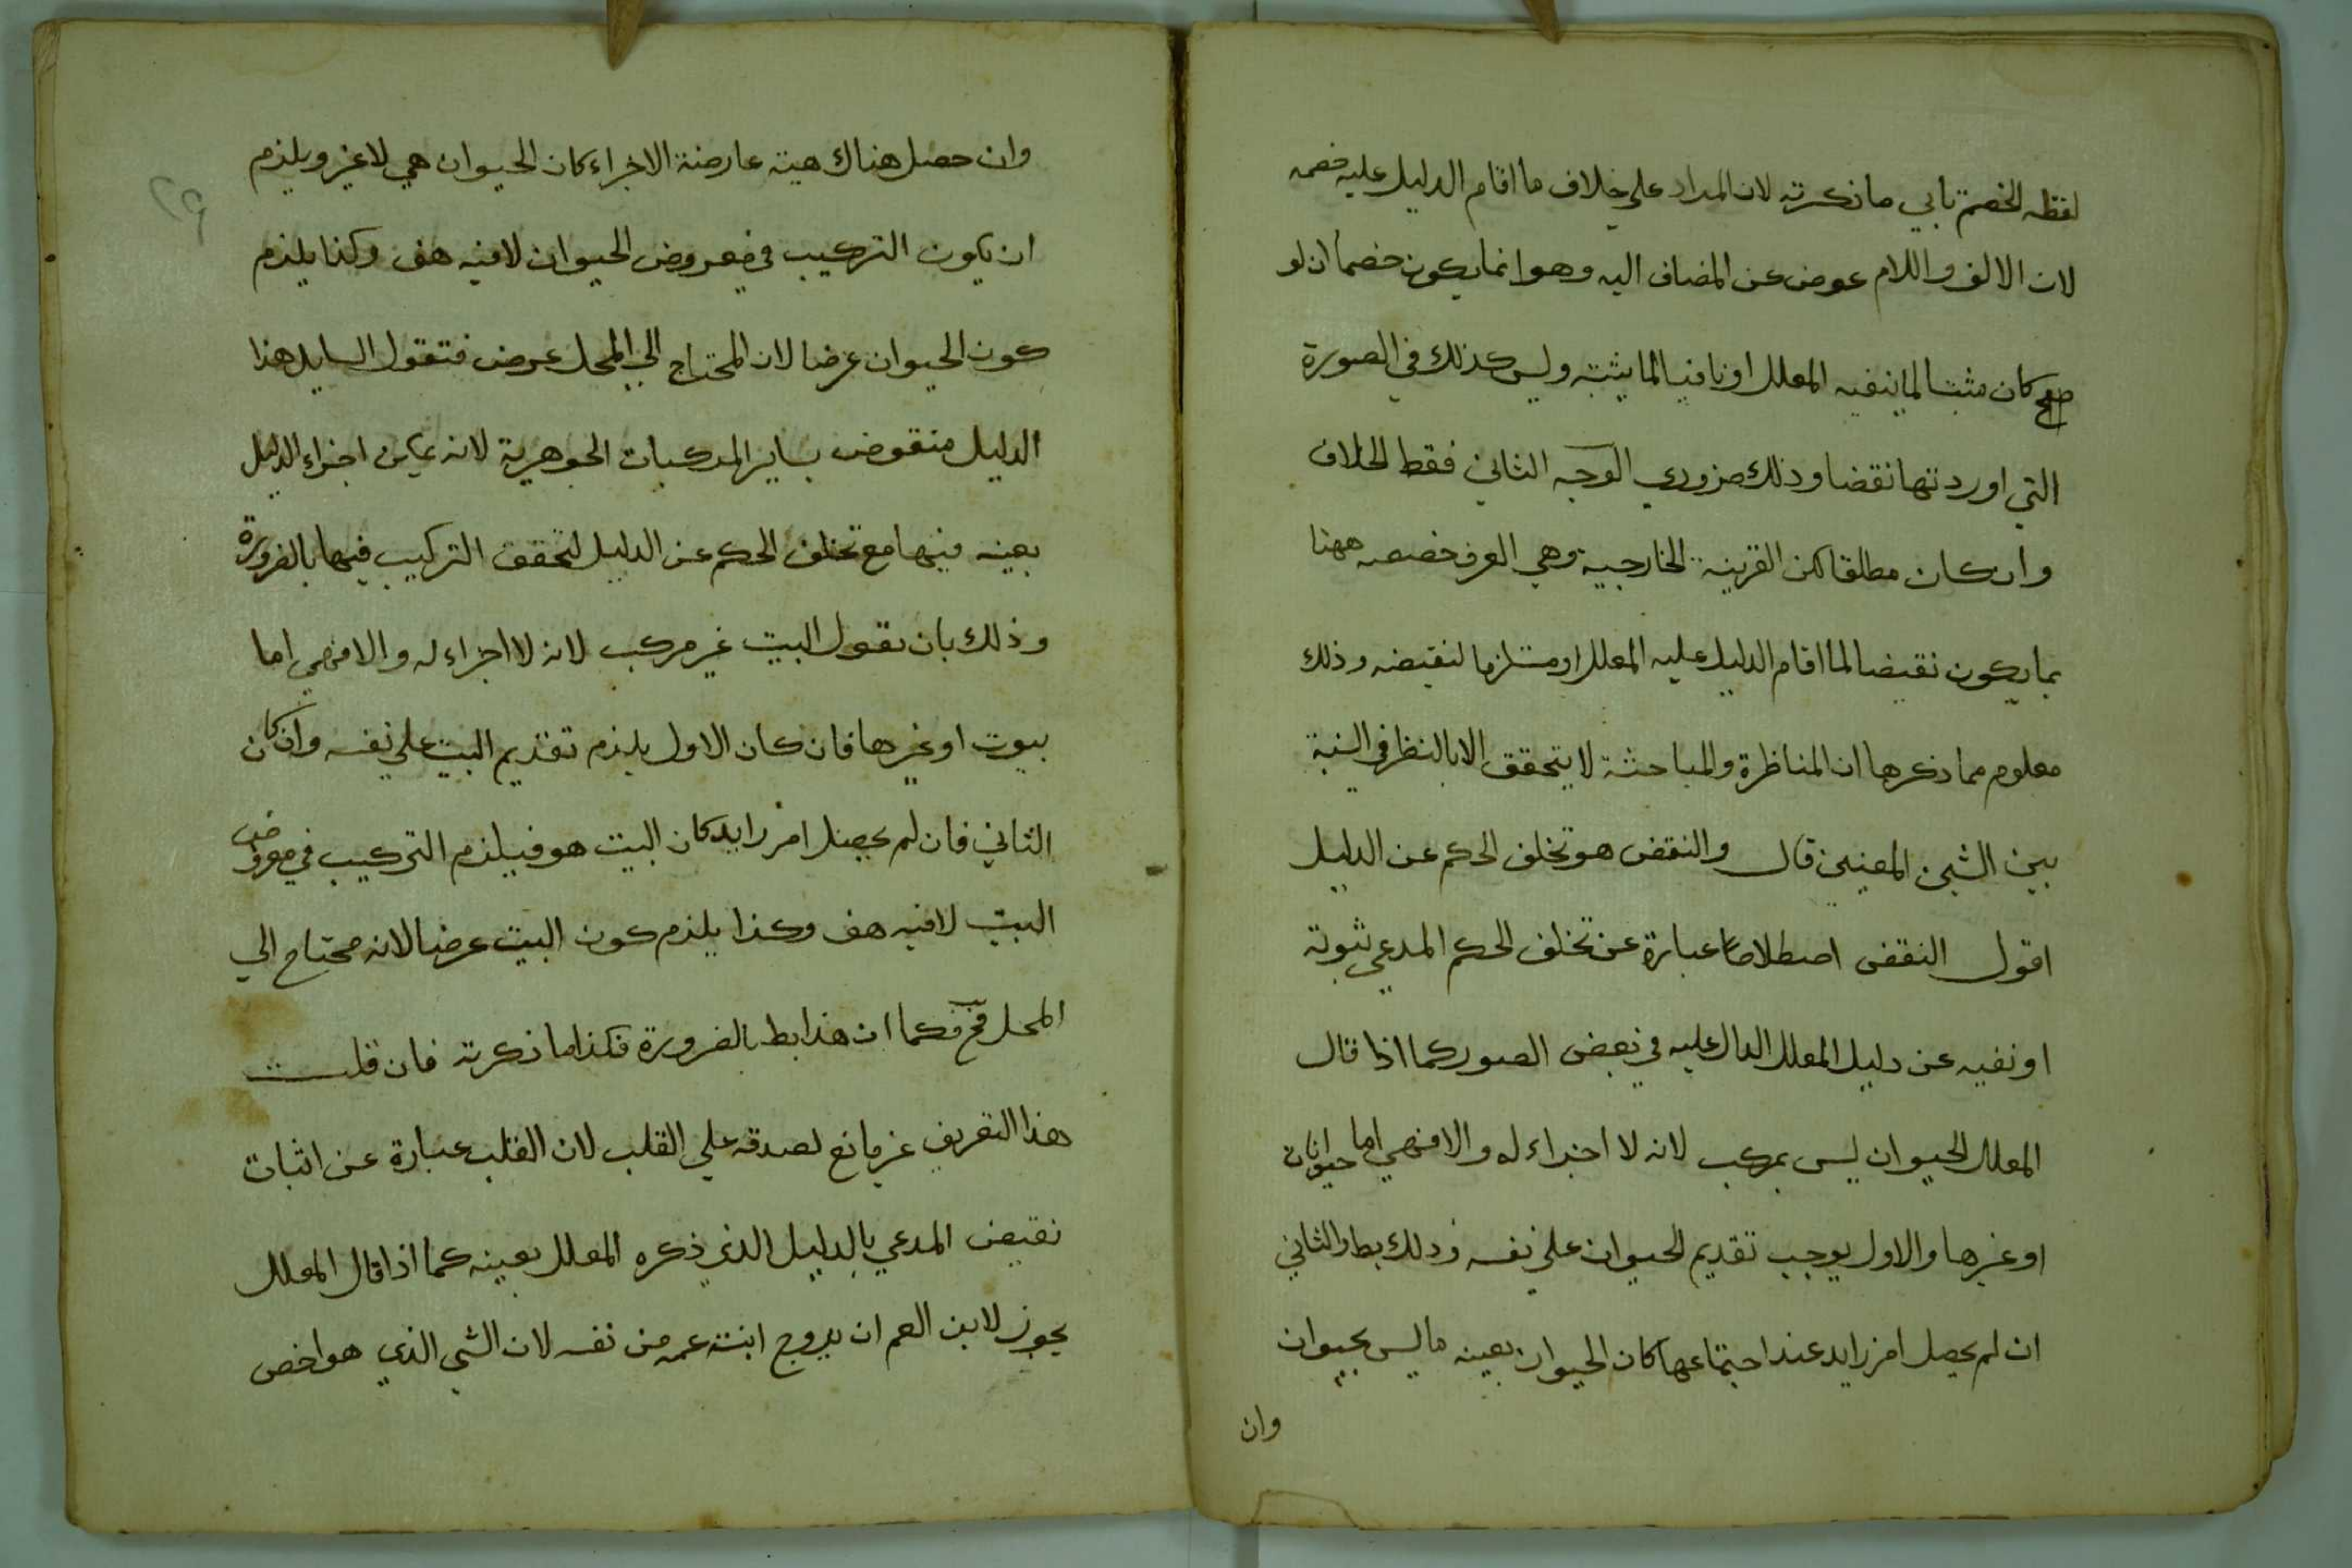 لفظه الخصم تابي ما ذكرته لان المراد علي خلاف ما اقام الدليل عليه خصمه
لان الالف واللام عوض عن المضاف اليه وهو انما يكون خصما ان لو
كان مثبتا لما ينفيه المعلل او نافيا لما يثبته وليس كذلك في الصورة
التي اوردتها نقضا وذلك ضروري الوجه الثاني فقط الخلاف
وان كان مطلقا لكن القرينة الخارجية وهي العرف خصصه ههنا
بما يكون نقيضا لما اقام الدليل عليه المعلل او مستلزما لنقيضه وذلك
معلوم مما ذكرها ان المناظرة والمباحثة لا يتحقق الا بالنظر في النسبة
بين الشيئين المعينين قال والنقض هو تخلف الحكم عن الدليل
اقول النقض اصطلاحا عبارة عن تخلف الحكم المدعي ثبوته
او نفيه عن دليل المعلل الدال عليه في بعض الصور كما اذا قال
المعلل الحيوان ليس بمركب لانه لا اجزاء له والا فهي اما حيوانات
او غيرها والاول يوجب تقديم الحيوان علي نفسه وذلك بط والثاني
ان لم يحصل امر زايد عند اجتماعها كان الحيوان بعينه ما ليس بحيوان
وان
٢٩
وان حصل هناك هيئة عارضة الاجزاء كان الحيوان هي لا غير ويلزم
ان يكون التركيب في معروض الحيوان لا فيه هف وكذا يلزم
كون الحيوان عرضا لان المحتاج الي المحل عرض فتقول السايل هذا
الدليل منقوض بساير المركبات الجوهرية لانه يمكن اجراء الدليل
بعينه فيها مع تخلف الحكم عن الدليل لتحقق التركيب فيها بالضرورة
وذلك بان نقول البيت غير مركب لانه لا اجزاء له والا فهي اما
بيوت او غيرها فان كان الاول يلزم تقديم البيت علي نفسه وان كان
الثاني فان لم يحصل امر زايد كان البيت هو فيلزم التركيب في معروض
البيت لا فيه هف وكذا يلزم كون البيت عرضا لانه محتاج الي
المحل فح فكما ان هذا بط بالضرورة فكذا ما ذكرته فان قلت
هذا التعريف غير مانع لصدقه علي القلب لان القلب عبارة عن اثبات
نقيض المدعي بالدليل الذي ذكره المعلل بعينه كما اذا قال المعلل
يجوز لابن العم ان يزوج ابنة عمه من نفسه لان الشي الذي هو اخص